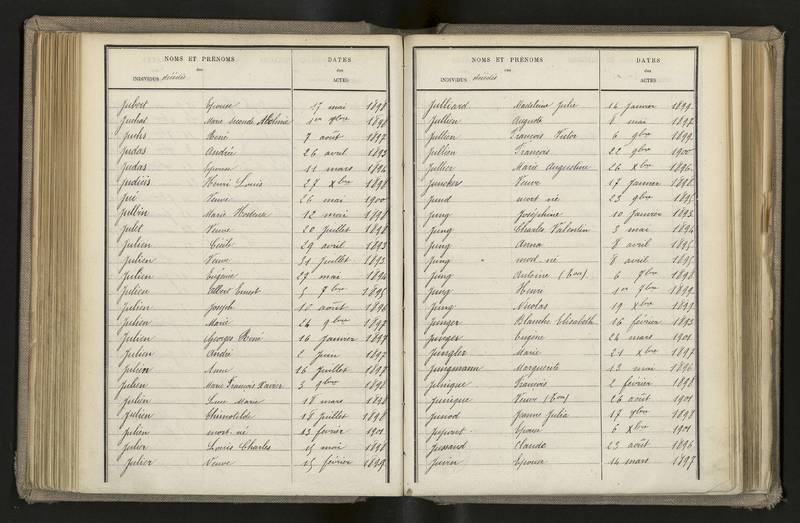 NOMS ET PRÉNOMS DATES
des des
INDIVIDUS décédés ACTES
Jubert Epouse 17 mai 1898
Juchat Marie Seconde 1er 1898
René 7 août 1897
Judas Andrée 26 avril 1893
Judas Epouse 11 mars 1894
Judicis Henri Louis 27 Xbre 1898
Jué Veuve 26 mai 1900
Marie Hortense 12 mai 1898
Julet Veuve 20 juillet 1898
Julien Cécile 29 avril 1893
Julien Veuve 31 juillet 1893
Julien Eugénie 27 mai 1894
Julien Albert Ernest 5 7bre 1895
Julien Joseph 10 août 1896
Julien Marie 24 9bre 1897
Julien Georges René 16 janvier 1897
Julien André 2 juin 1897
Julien Anne 16 juillet 1897
Julien Marie François Xavier 3 9bre 1898
Julien Marie 18 mars 1898
Julien 18 juillet 1898
Julien mort-né 13 février 1901
Julier Louis Charles 15 mai 1898
Julier Veuve 15 février 1899
NOMS ET PRÉNOMS DATES
des des
INDIVIDUS décédés ACTES
Julliard Madeleine Julie 14 janvier 1899
Jullien Auguste 8 mai 1897
Jullien François Victor 6 9bre 1899
Jullien François 22 9bre 1900
Jullier Marie Augustine 26 Xbre 1896
Juncker Veuve 17 janvier 1898
Jund mort-né 23 9bre 1895
Jung Joséphine 10 janvier 1893
Jung Charles Valentin 3 mai 1894
Jung Anna 8 avril 1895
Jung mort-né 8 avril 1895
Jung Antoine (Eon) 6 7bre 1898
Jung Henri 1er 1899
Jung Nicolas 19 Xbre 1899
Junger Blanche Elisabeth 16 février 1893
Junger Eugène 24 mars 1901
Jungler Marie 21 Xbre 1897
Jungmann Marguerite 13 mai 1896
Junique François 2 février 1898
Junique Veuve (Eon) 26 août 1901
Junod Jeanne Julia 17 9bre 1898
Epouse 6 Xbre 1901
Claude 23 août 1896
Juvin Epouse 14 mars 1897